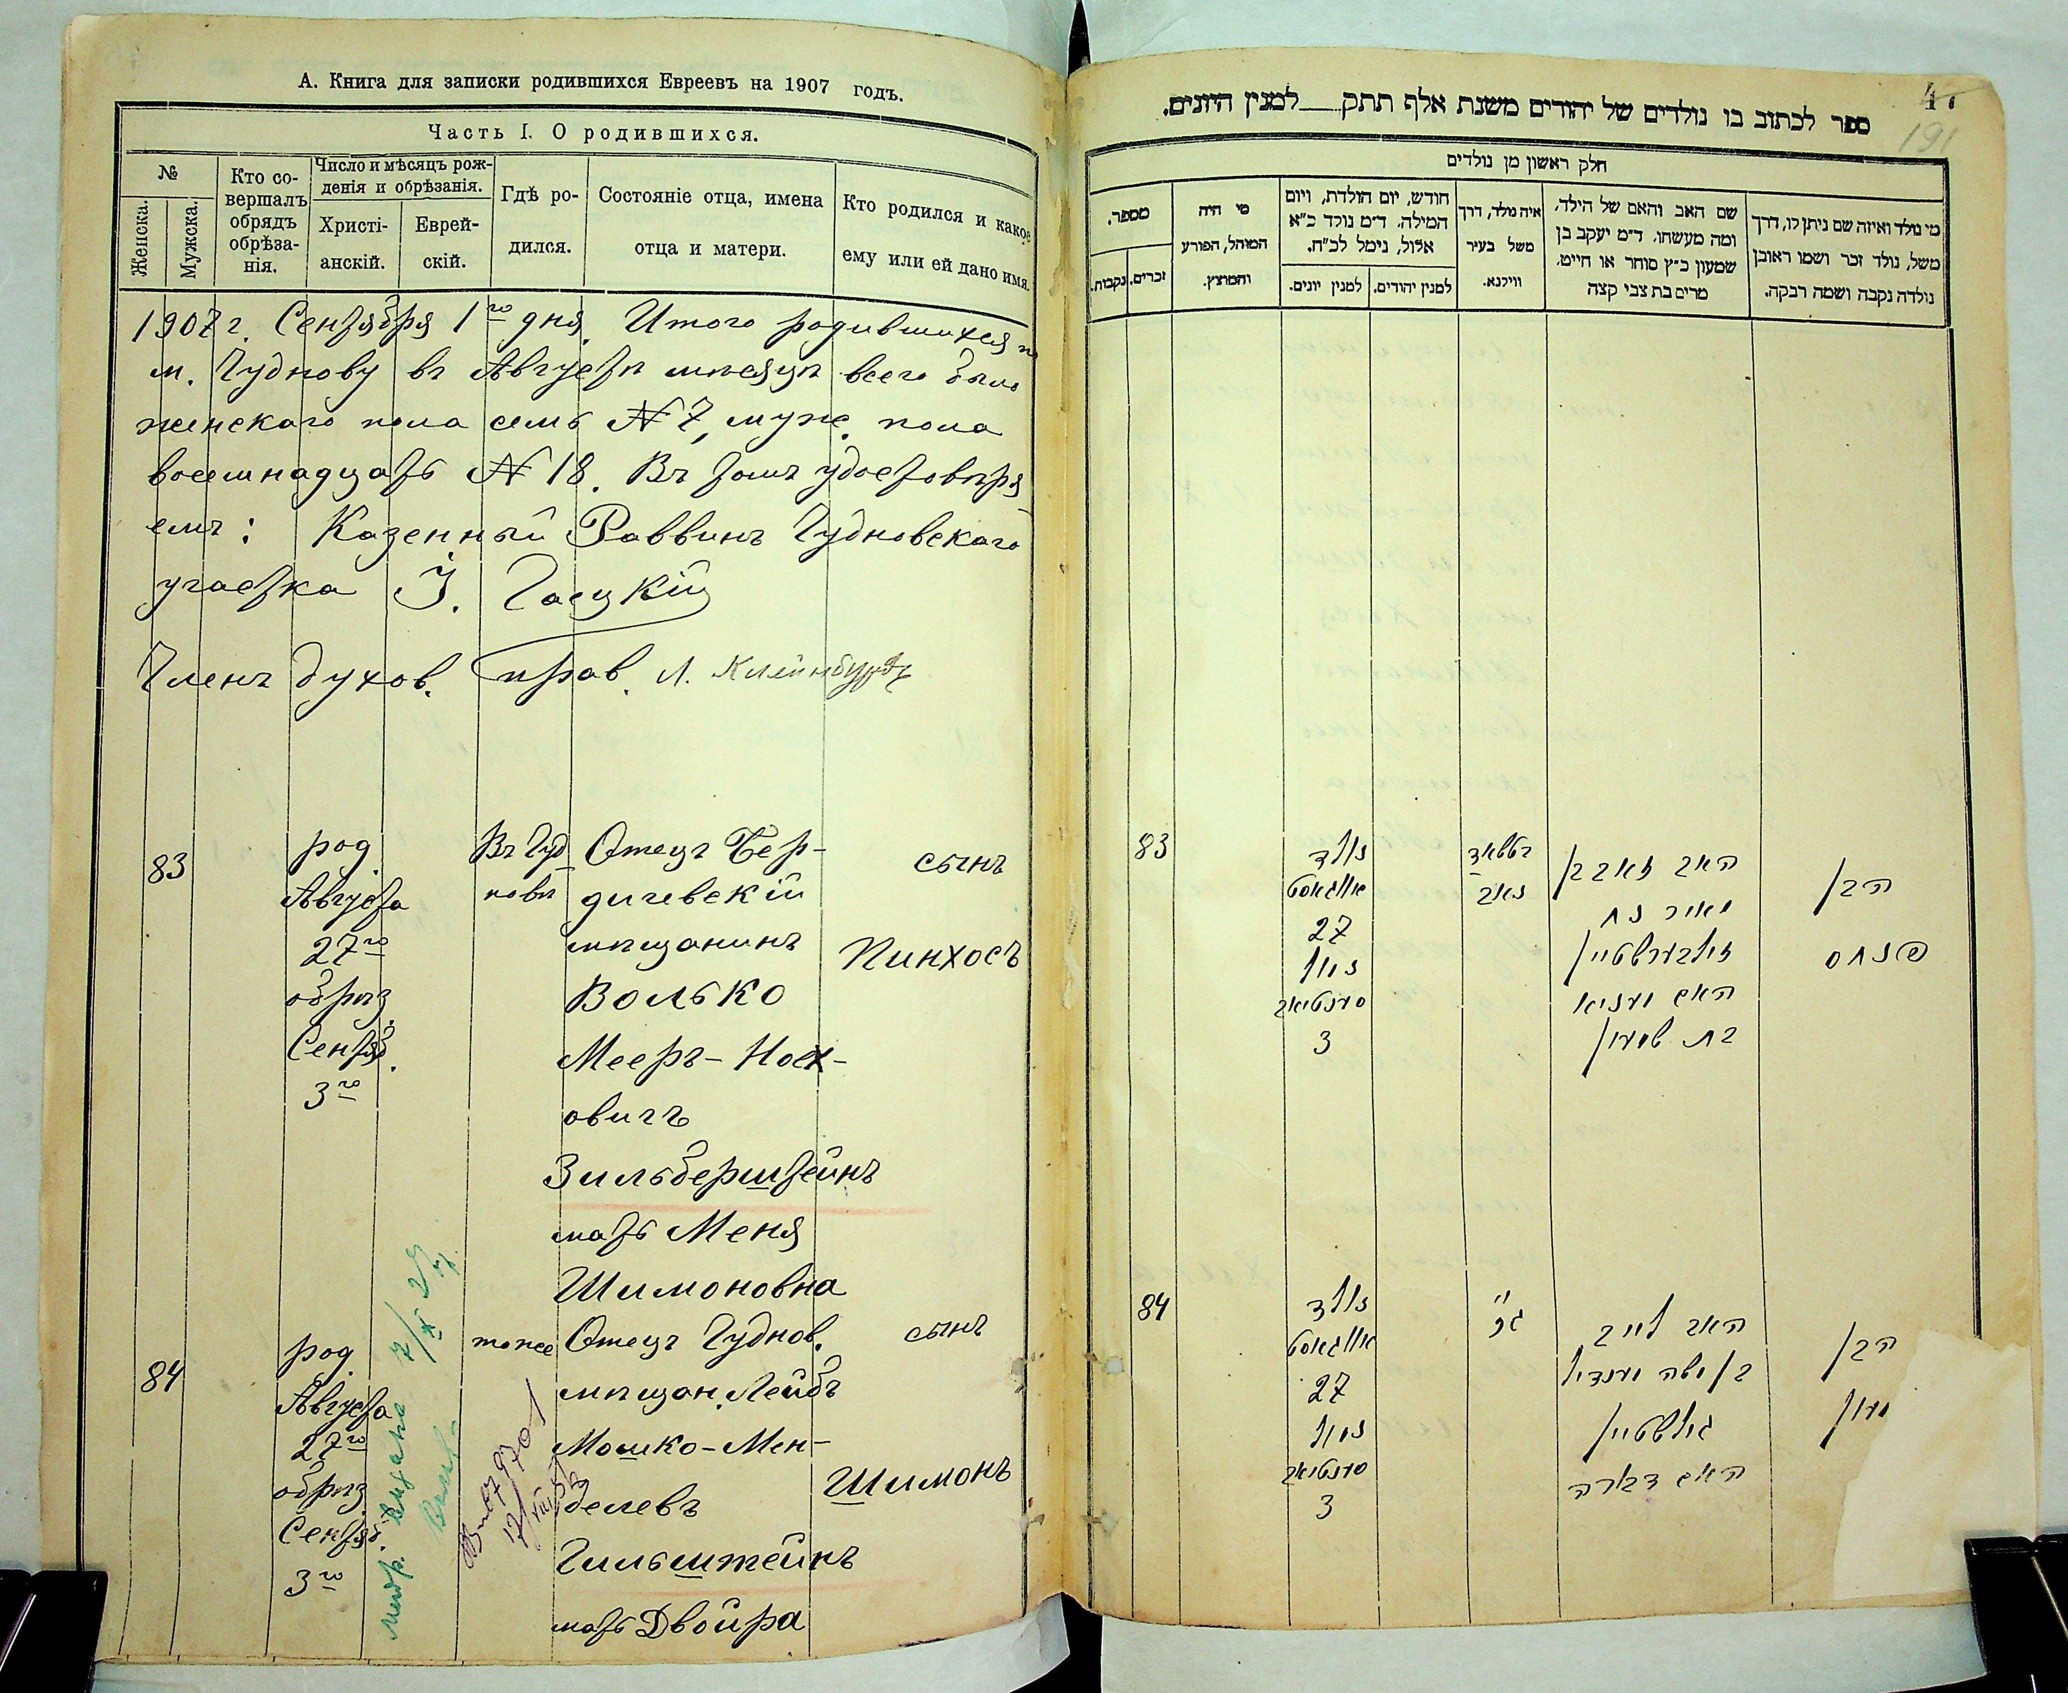 А. Книга для записки родившихся Евреевъ на 1907 годъ.
Часть I. О родившихся.
№
Женска.
Мужска.
Кто со-
вершалъ
обрядъ
обрѣза-
нія.
Число и мѣсяцъ рож-
денія и обрѣзанія.
Христі-
анскій.
Еврей-
скій.
Гдѣ ро-
дился.
Состояніе отца, имена
отца и матери.
Кто родился и какое
ему или ей дано имя.
1907 г. Сентября 1го дня. Итого родившихся по
м. Чуднову въ Августѣ мѣсяцѣ всего было
женскаго пола семь № 7, муж. пола
восемнадцать № 18. Въ томъ удостовѣря
емъ: Казенный Раввинъ Чудновскаго
участка
Членъ духов. прав. Л. Клейнбурдъ
83
род.
Августа
27го
обрѣз.
Сентяб.
3го
Въ Чуд
новѣ
Отецъ Бер-
дичевскій
мѣщанинъ
Волько
Мееръ-Нох-
овичъ
Зильберштейнъ
мать Меня
Шимоновна
сынъ
Пинхосъ
84
род.
Августа
27го
обрѣз.
Сентяб.
3го
тоже
Отецъ Чуднов.
мѣщан. Лейбъ
Мошко-Мен-
делевъ
Гильштейнъ
мать Двойра
сынъ
Шимонъ
ספר לכתוב בו נולדים של יהודים משנת אלף תתק למנין היונים.
191
חלק ראשון מן נולדים
מספר.
זכרים.
נקבות.
מי היה
המוהל, הפורע
והמוצץ.
חודש, יום הולדת, ויום
המילה. ד״מ נולד כ״א
אלול, נימל לכ״ח.
למנין יונים.
למנין יהודים.
איה נולד, דרך
משל בעיר
ווילנא.
שם האב והאם של הילד,
ומה מעשהו. ד״מ יעקב בן
שמעון כ״ץ סוחר או חייט,
מרים בת צבי קצה
מי נולד ואיזה שם ניתן לו, דרך
משל, נולד זכר ושמו ראובן
נולדה נקבה ושמה רבקה.
83
נולד
אווגוסט
27
נימול
סענטיאב
3
האב וואב בן
מאיר נח
זילבערשטיין
האם מעניא
בת שמעון
הבן
פנחס
84
נולד
אווגוסט
27
נימול
סענטיאב
3
האב לייב
בן משה מענדיל
גילשטיין
האם דבורה
הבן